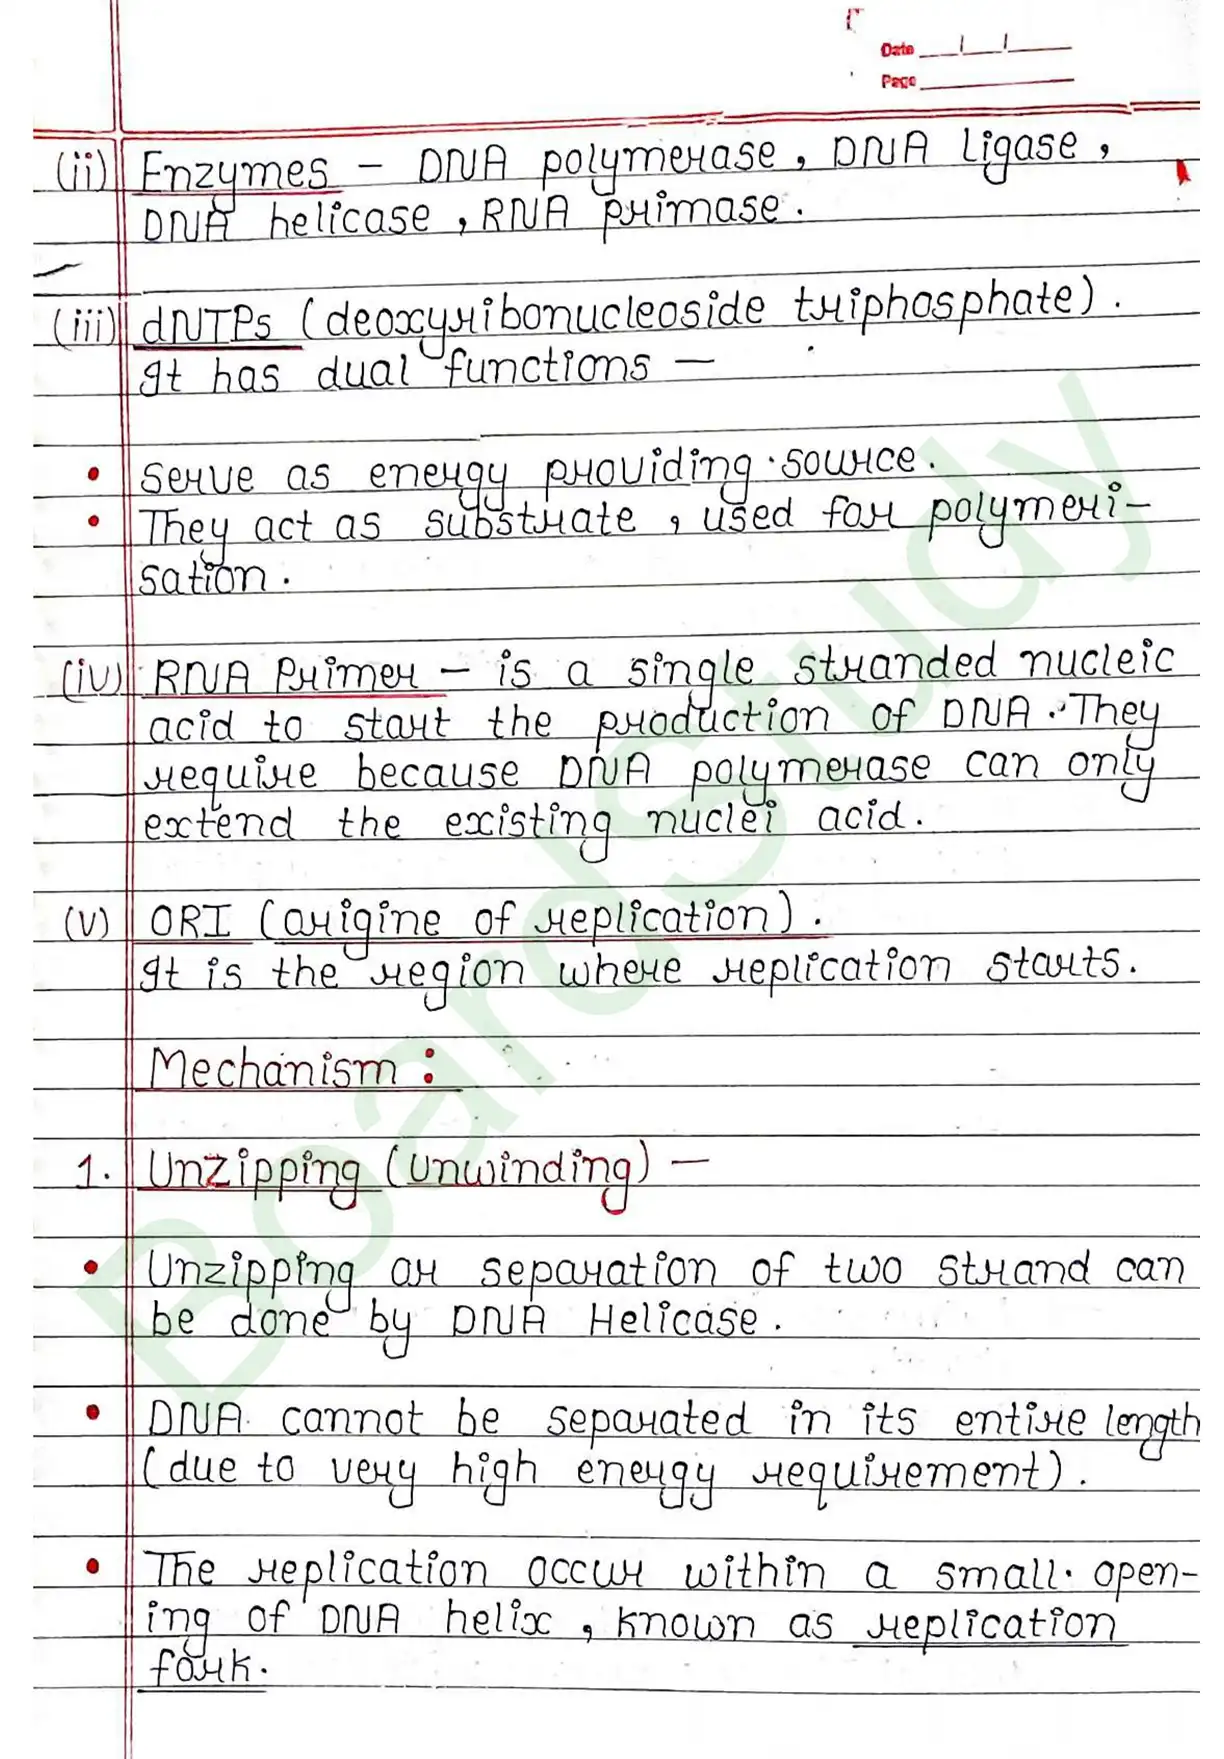 Date
Page
(ii) Enzymes - DNA polymerase, DNA ligase,
DNA helicase, RNA primase.
(iii) dNTPs (deoxyribonucleoside triphosphate).
It has dual functions —
• Serve as energy providing source.
• They act as substrate, used for polymeri-
sation.
(iv) RNA Primer - is a single stranded nucleic
acid to start the production of DNA. They
require because DNA polymerase can only
extend the existing nuclei acid.
(v) ORI (origine of replication).
It is the region where replication starts.
Mechanism :
1. Unzipping (unwinding) —
• Unzipping or separation of two strand can
be done by DNA Helicase.
• DNA cannot be separated in its entire length
(due to very high energy requirement).
• The replication occur within a small open-
ing of DNA helix, known as replication
fork.
BoardStudy